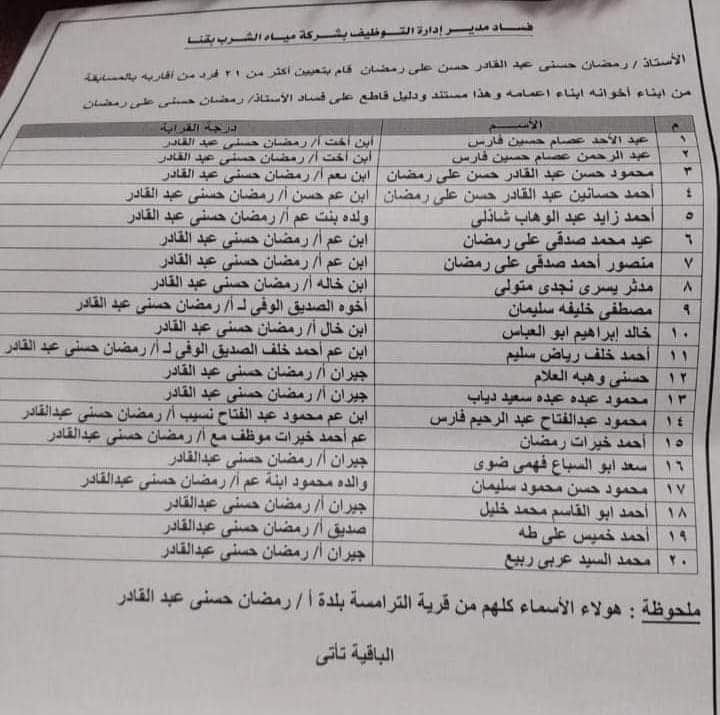 فساد مدير إدارة التوظيف بشركة مياه الشرب بقنا
الأستاذ / رمضان حسنى عبد القادر حسن على رمضان قام بتعيين أكثر من ٢١ فرد من أقاربه بالمسابقة
من ابناء أخوانه ابناء اعمامه وهذا مستند ودليل قاطع على فساد الأستاذ/ رمضان حسنى على رمضان
م الأســـم درجة القرابة
١ عبد الأحد عصام حسين فارس ابن أخت أ/ رمضان حسنى عبد القادر
٢ عبد الرحمن عصام حسين فارس ابن أخت أ/ رمضان حسنى عبد القادر
٣ محمود حسن عبد القادر حسن على رمضان ابن عم أ/ رمضان حسنى عبد القادر
٤ أحمد حسانين عبد القادر حسن على رمضان ابن عم حسن أ/ رمضان حسنى عبد القادر
٥ أحمد زايد عبد الوهاب شاذلى ولده بنت عم أ/ رمضان حسنى عبد القادر
٦ عيد محمد صدقي على رمضان ابن عم أ/ رمضان حسنى عبد القادر
٧ منصور أحمد صدقي على رمضان ابن عم أ/ رمضان حسنى عبد القادر
٨ مدثر يسرى نجدى متولى ابن خاله أ/ رمضان حسنى عبد القادر
٩ مصطفى خليفه سليمان أخوه الصديق الوفى لـ أ/ رمضان حسنى عبد القادر
١٠ خالد إبراهيم ابو العباس ابن خال أ/ رمضان حسنى عبد القادر
١١ أحمد خلف رياض سليم ابن عم أحمد خلف الصديق الوفى لـ أ/ رمضان حسنى عبد القادر
١٢ حسنى وهبه العلام جيران أ/ رمضان حسنى عبد القادر
١٣ محمود عبده عبده سعيد دياب جيران أ/ رمضان حسنى عبد القادر
١٤ محمود عبدالفتاح عبد الرحيم فارس ابن عم محمود عبد الفتاح نسيب أ/ رمضان حسنى عبدالقادر
١٥ أحمد خيرات رمضان عم أحمد خيرات موظف مع أ/ رمضان حسنى عبدالقادر
١٦ سعد ابو السباع فهمى ضوى جيران أ/ رمضان حسنى عبدالقادر
١٧ محمود حسن محمود سليمان والده محمود ابنة عم أ/ رمضان حسنى عبدالقادر
١٨ أحمد ابو القاسم محمد خليل جيران أ/ رمضان حسنى عبدالقادر
١٩ أحمد خميس على طه صديق أ/ رمضان حسنى عبدالقادر
٢٠ محمد السيد عربى ربيع جيران أ/ رمضان حسنى عبدالقادر
ملحوظة : هولاء الأسماء كلهم من قرية الترامسة بلدة أ / رمضان حسنى عبد القادر
الباقية تأتى